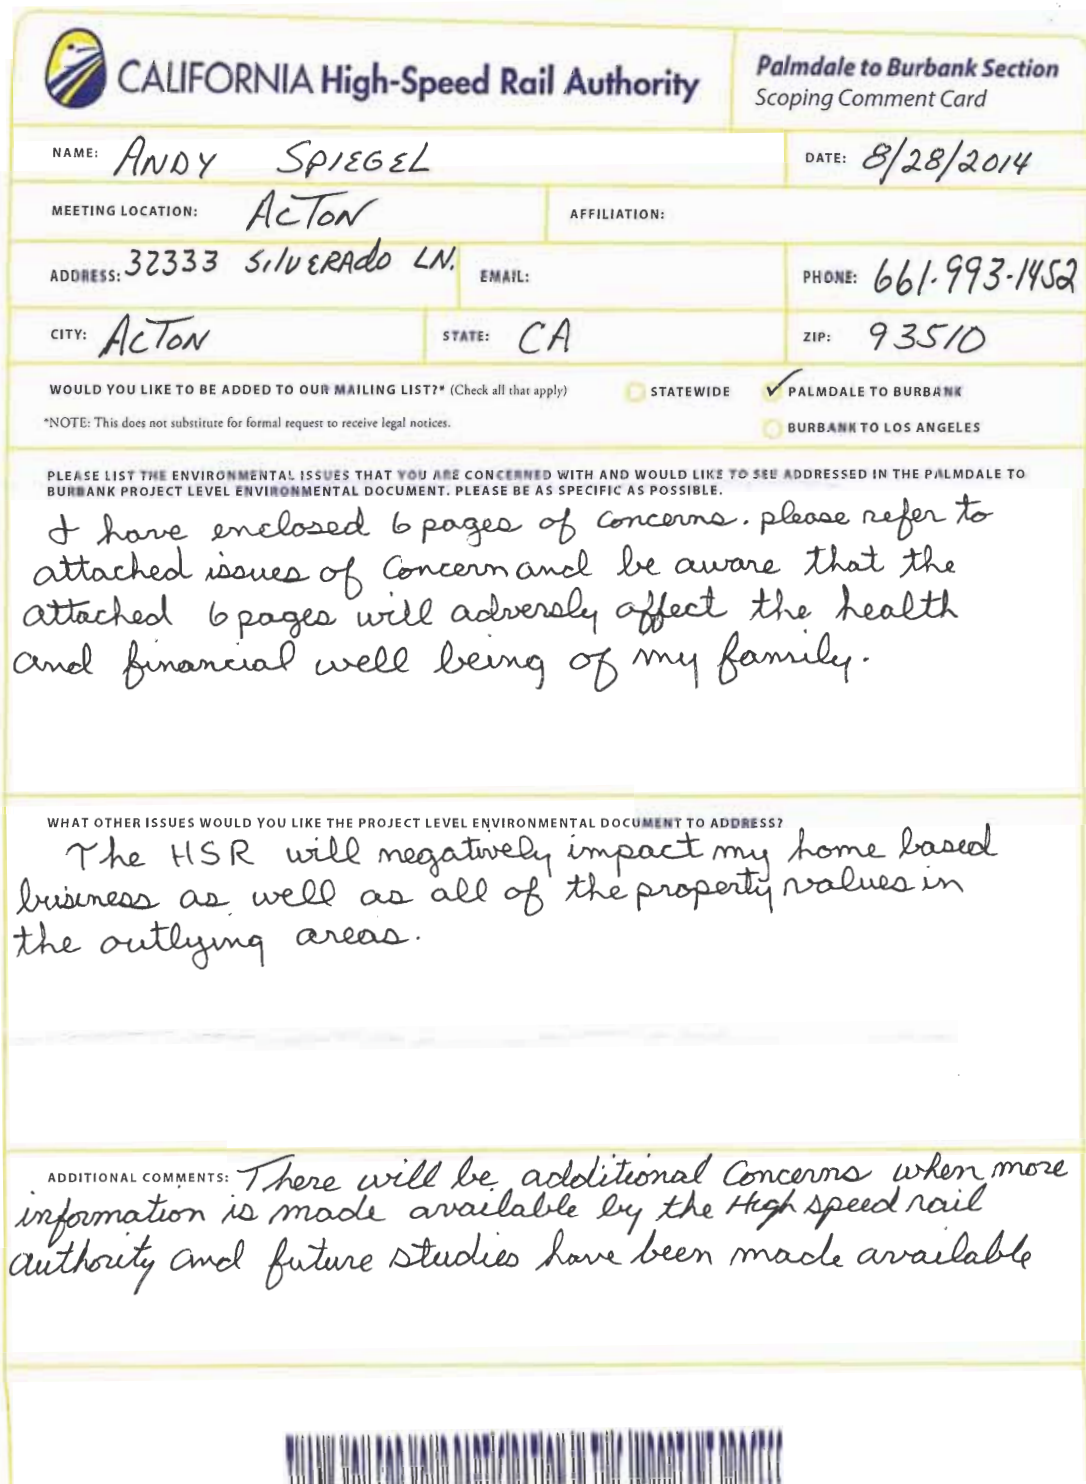 CALIFORNIA High-Speed Rail Authority
Palmdale to Burbank Section
Scoping Comment Card
NAME: ANDY SPIEGEL
DATE: 8/28/2014
MEETING LOCATION: ACTON
AFFILIATION:
ADDRESS: 32333 SILVERADO LN.
EMAIL:
PHONE: 661-993-1452
CITY: ACTON
STATE: CA
ZIP: 93510
WOULD YOU LIKE TO BE ADDED TO OUR MAILING LIST?* (Check all that apply)
STATEWIDE
✓ PALMDALE TO BURBANK
*NOTE: This does not substitute for formal request to receive legal notices.
BURBANK TO LOS ANGELES
PLEASE LIST THE ENVIRONMENTAL ISSUES THAT YOU ARE CONCERNED WITH AND WOULD LIKE TO SEE ADDRESSED IN THE PALMDALE TO
BURBANK PROJECT LEVEL ENVIRONMENTAL DOCUMENT. PLEASE BE AS SPECIFIC AS POSSIBLE.
I have enclosed 6 pages of concerns. please refer to
attached issues of Concern and be aware that the
attached 6 pages will adversly affect the health
and financial well being of my family.
WHAT OTHER ISSUES WOULD YOU LIKE THE PROJECT LEVEL ENVIRONMENTAL DOCUMENT TO ADDRESS?
The HSR will negatively impact my home based
business as well as all of the property values in
the outlying areas.
ADDITIONAL COMMENTS: There will be additional Concerns when more
information is made available by the High speed rail
authority and future studies have been made available
THANK YOU FOR YOUR PARTICIPATION IN THIS IMPORTANT PROCESS